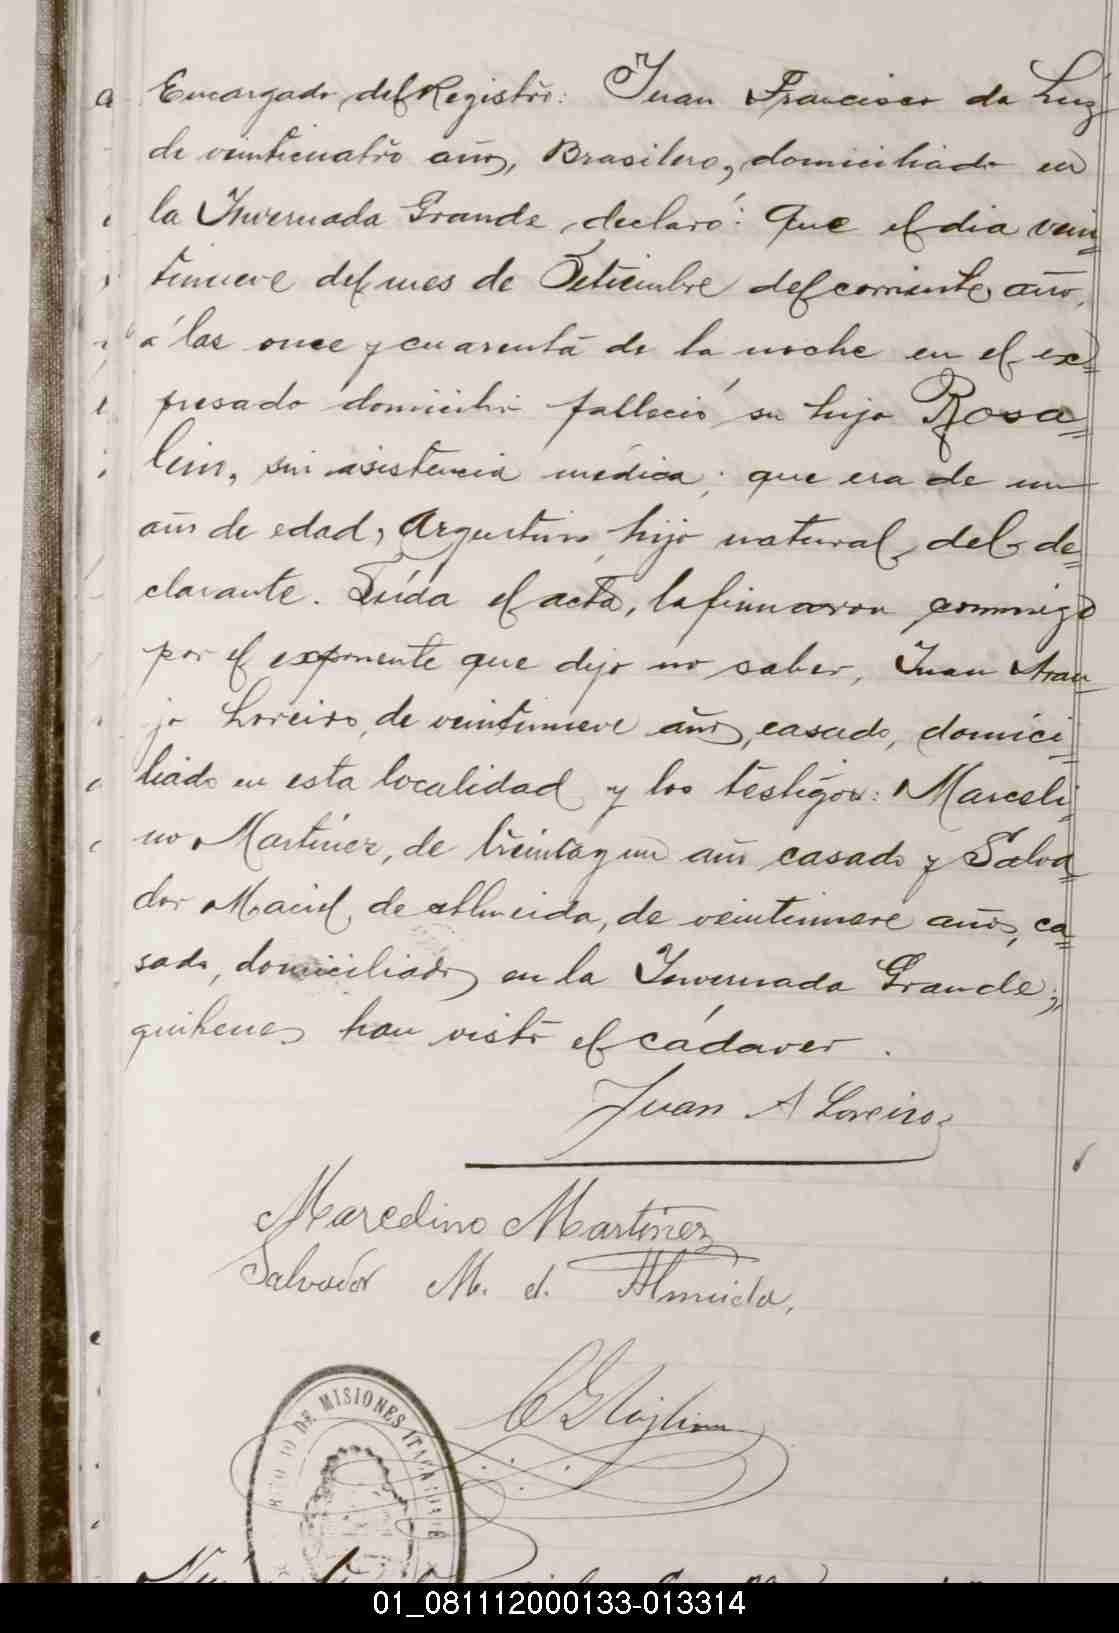 Encargado del Registro: Juan Francisco da Luz
de veinticuatro años, Brasilero, domiciliado en
la Invernada Grande, declaró: Que el dia vein=
tinueve del mes de Setiembre del corriente año,
á las once y cuarenta de la noche en el ex=
presado domicilio falleció su hijo Rosa=
lin, sin asistencia médica; que era de un
año de edad, Argentino hijo natural del de=
clarante. Leída el acta, la firmaron conmigo
por el exponente que dijo no saber, Juan Arau=
jo Loreiro, de veintinueve años, casado, domici=
liado en esta localidad y los testigos: Marceli=
no Martinez, de treinta y un años casado y Salva=
dor Maciel de Almeida, de veintinueve años, ca=
sado, domiciliados en la Invernada Grande;
quienes han visto el cádaver.
Juan A Loreiro
Marcelino Martinez
Salvador M. d. Almeida,
DE MISIONES ITACARUARÉ
01_081112000133-013314